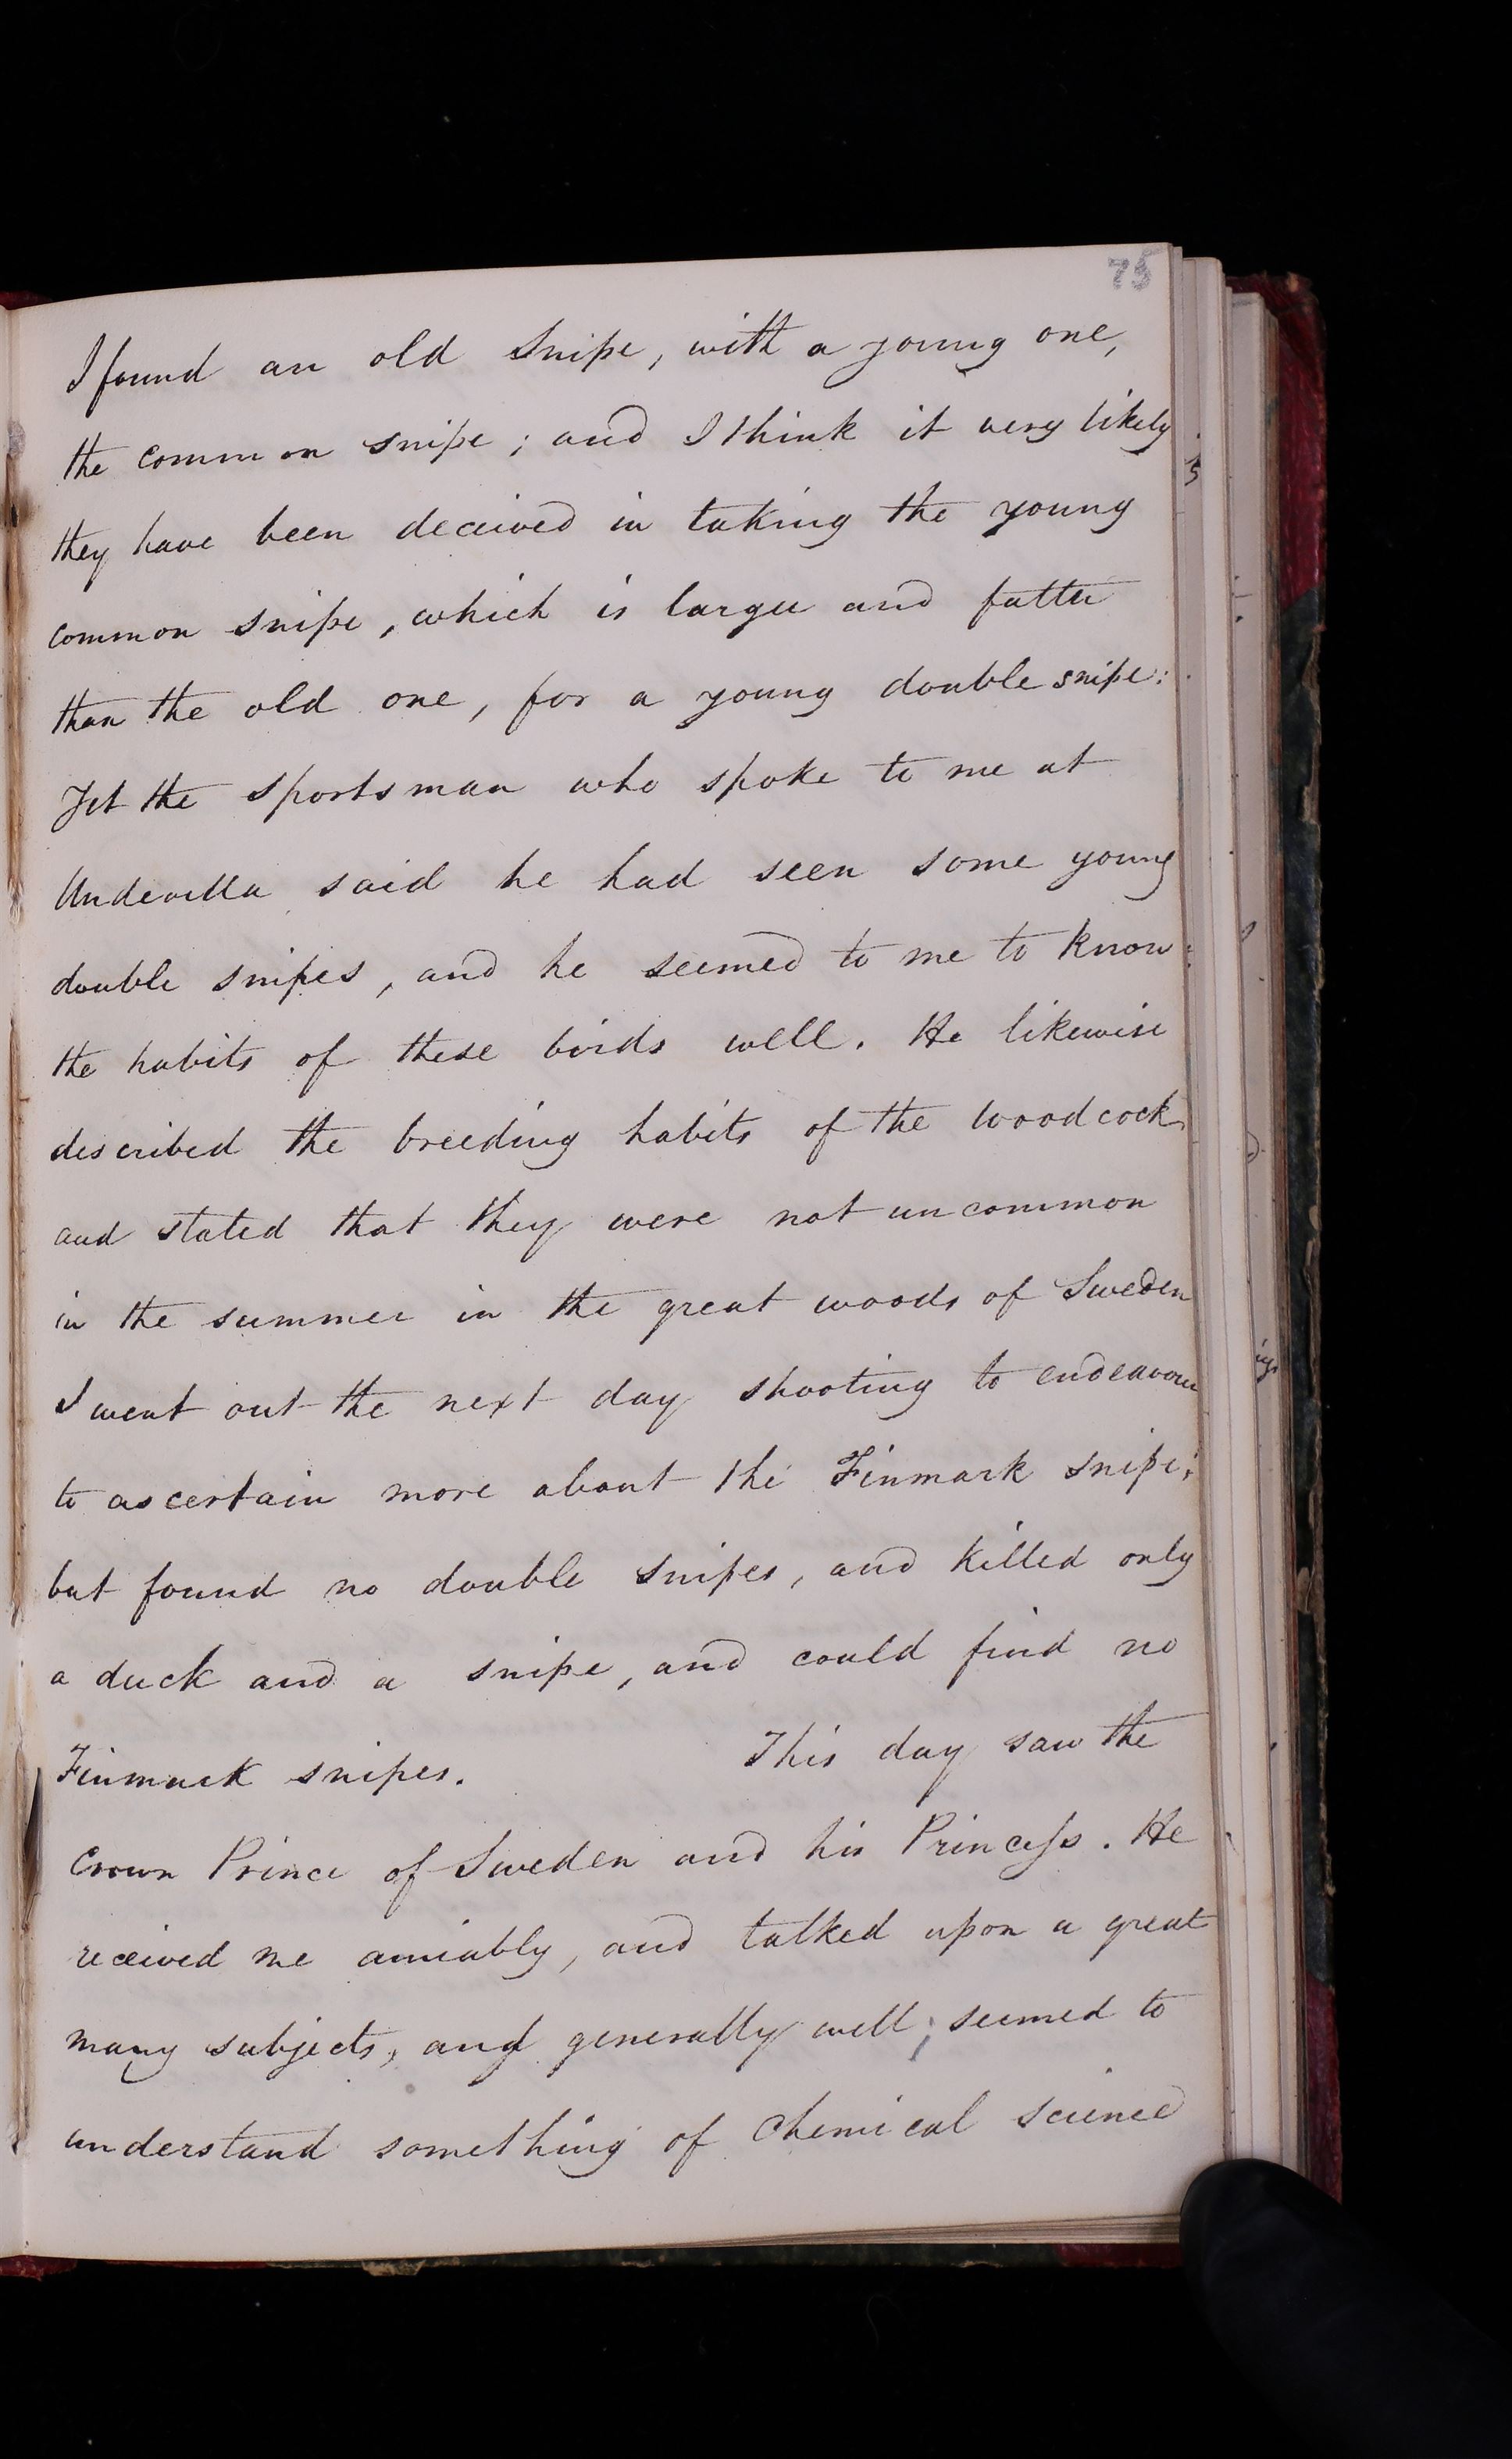 75
I found an old Snipe, with a young one,
the common snipe; and I think it very likely
they have been deceived in taking the young
common snipe, which is larger and fatter
than the old one, for a young double snipe:
Yet the sportsman who spoke to me at
said he had seen some young
double snipes, and he seemed to me to know
the habits of these birds well. He likewise
described the breeding habits of the woodcock
and stated that they were not uncommon
in the summer in the great woods of Sweden
I went out the next day shooting to endeavour
to ascertain more about the Finmark snipe;
but found no double snipes, and killed only
a duck and a snipe, and could find no
Finmark snipes. This day saw the
Crown Prince of Sweden and his Princess. He
received me amiably, and talked upon a great
many subjects, and generally well; seemed to
understand something of Chemical science